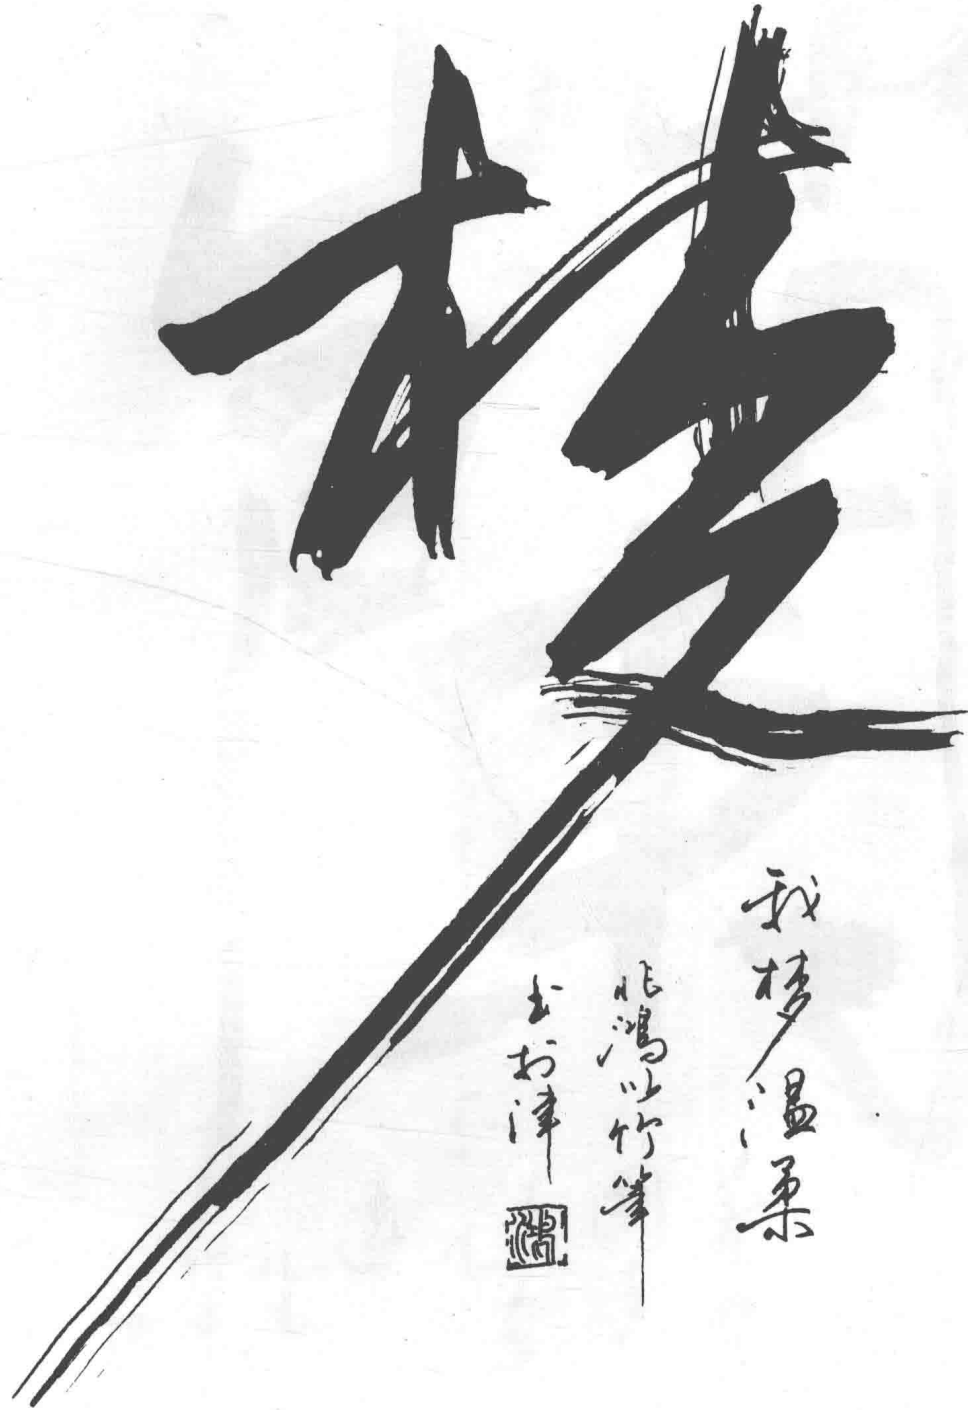 梦
我梦温柔
鸿以竹笔
书於津
鸿